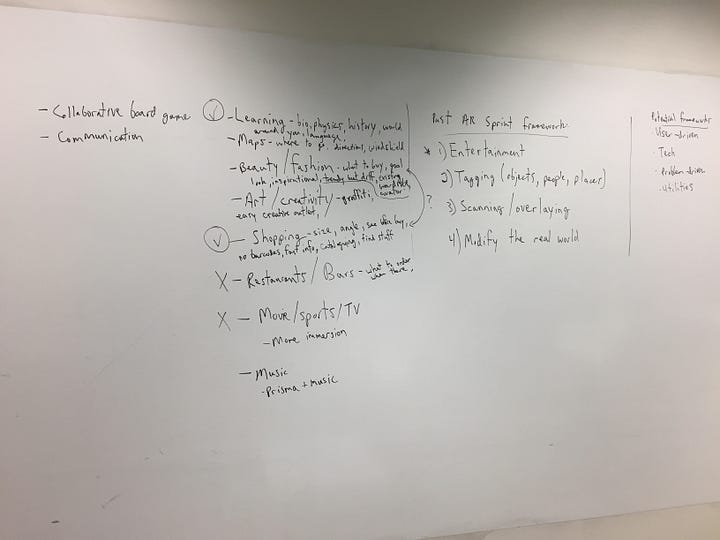 - Collaborative board game
- Communication
✓ - Learning - bio, physics, history, world
around you, language,
- Maps - where to go, directions, windshield
- Beauty/fashion - what to buy, goal
look, inspirational, trendy but diff, existing
wardrobe,
curator
- Art/creativity - graffiti,
easy creative outlet,
✓ - Shopping - size, angle, see buy,
no barcodes, fast info, cataloguing, find staff
X - Restaurants/Bars - what to order
when there,
X - Movie/sports/TV
- More immersion
- Music
- Prisma + music
Past AR Sprint frameworks:
* 1) Entertainment
2) Tagging (objects, people, places)
? 3) Scanning/overlaying
4) Modify the real world
Potential frameworks
- User-driven
- Tech
- Problem-driven
- utilities